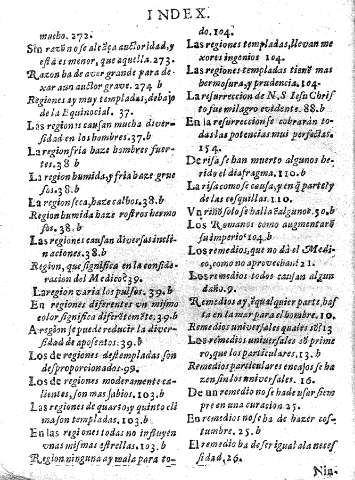 INDEX.
mucho. 272.
Sin razõ no se alcãça auctoridad, y
està es menor, que aquella. 273.
Razon ha de aver grande para de-
xar a un auctor grave. 274 b
Regiones ay muy templadas, debajo
de la Equinocial. 37.
Las regiones causan mucha diver-
sidad en los hombres. 37. b
La region fria haze hombres fuer-
tes. 38 b
La region humida, y fria haze grue
sos. 38. b
La region seca, haze calbos. 38. b
Region humida haze rostros hermo
sos. 38. b
Las regiones causan diversas incli-
naciones. 38. b
Region, que significa en la conside-
racion del Medico? 39.
La region varia los pulsos. 39. b
En regiones diferentes vn mismo
color significa diferẽtemẽte. 39. b
A region se puede reducir la diver-
sidad de aposentos. 39. b
Los de regiones destempladas son
desproporcionados. 99.
Los de regiones moderamente ca-
lientes, son mas sabios. 103. b
Las regiones de quarto y quinto cli
ma son templadas. 103. b
En las regiones todas no influyen
vnas mismas estrellas. 103. b
Region ninguna ay mala para to-
do. 104.
Las regiones templadas, llevan me
xores ingenios 104.
Las regiones templadas tienẽ mas
hermosura, y prudencia. 104.
La resurreccion de N. S. Iesu Chris
to fue milagro evidente. 88. b
En la resurreccion se cobraràn to-
das las potencias mui perfectas.
154.
De risa se han muerto algunos he-
rido el diafragma. 110.
La risa como se causa, y en q̃ parte y
de las cosquillas. 110.
Vn riñõ solo se halla ẽ algunos. 50. b
Los Romanos como augmentarõ
su imperio? 104. b
Los remedios, que no dà el Medi-
co, como no aprovechan? 21.
Los remedios todos causan algun
daño. 9.
Remedios ay, ẽ qualquier parte, has
ta en la mar para el hombre. 10.
Remedios universales quales sõ? 13
Los remedios universales sõ prime
ro, que los particulares. 13. b
Remedios particulares en casos se ha
zen sin los universales. 16.
De un remedio no se ha de usar siem
pre en una curacion 25.
En remedios no se ha de hazer cos-
tumbre. 25. b
El remedio ha de ser igual a la neces
sidad, 26.
Nin-